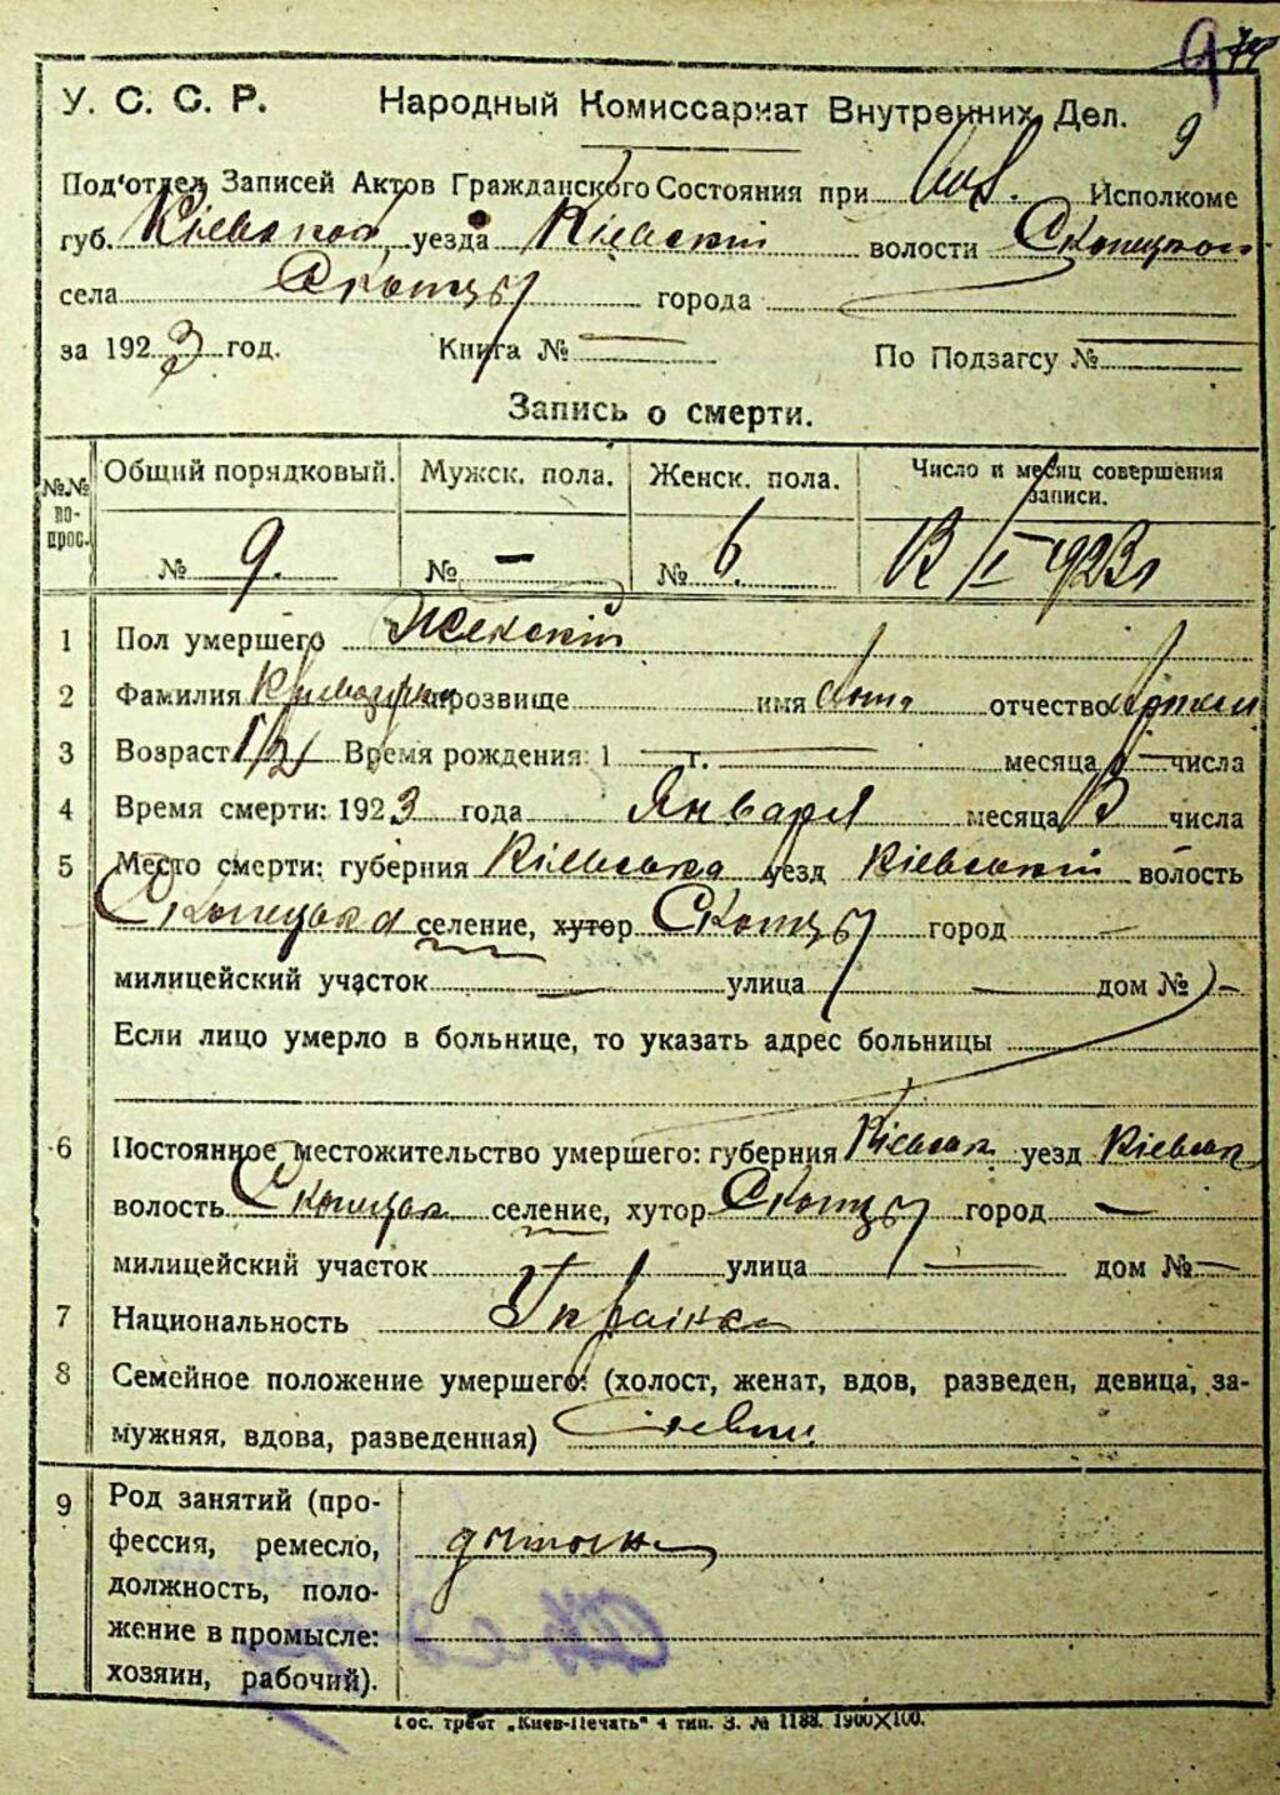 9
У. С. С. Р. Народный Комиссариат Внутренних Дел.
9
Под'отдел Записей Актов Гражданского Состояния при Исполкоме
губ. Кіевской уезда Кіевскій волости Скопецкой
села Скопцы города
за 1923 год. Книга № — По Подзагсу № —
Запись о смерти.
№№ вопрос. Общий порядковый. Мужск. пола. Женск. пола. Число и месяц совершения записи.
№ 9. № — № 6. 13/I 1923 г
1 Пол умершего Женскій
2 Фамилия прозвище имя Анна отчество
3 Возраст Время рождения: 1 — г. — месяца — числа
4 Время смерти: 1923 года Января месяца 13 числа
5 Место смерти: губерния Кіевська уезд Кіевській волость
Скопецька селение, хутор Скопцы город —
милицейский участок — улица — дом № —
Если лицо умерло в больнице, то указать адрес больницы
6 Постоянное местожительство умершего: губерния Кіевськ уезд Кіевськ
волость Скопецьк селение, хутор Скопцы город —
милицейский участок улица — дом № —
7 Национальность Українка
8 Семейное положение умершего: (холост, женат, вдов, разведен, девица, за-
мужняя, вдова, разведенная)
9 Род занятий (про-
фессия, ремесло,
должность, поло-
жение в промысле:
хозяин, рабочий).
Гос. трест „Киев-Печать“ 4 тип. З. № 1188. 1900×100.